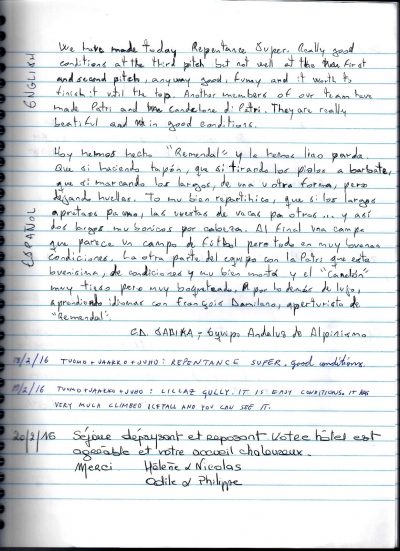 We have made today Repentance Super. Really good
conditions at the third pitch but not well at the first
and second pitch, anyway good, funny and it worth to
finish it until the top. Another members of our team have
made Patri and candelone di Patri. They are really
beatiful and in good conditions.
ENGLISH
Hoy hemos hecho "Remendal" y la hemos liao parda.
Que si haciendo tapón, que si tirando los piolos a barbate,
que si marcando los largos, de una u otra forma, pero
dejando huellas. To mu bien repartihico, que si los largos
apretaos pa uno, las vuestas de vacas pa otros... y así
dos largos mu bonicos por cabeza. Al final una campa
que parece un campo de fútbol pero todo en muy buenas
condiciones. La otra parte del equipo con la Patri que esta
buenisima, de condiciones y mu bien montá y el "Canelón"
muy tieso pero muy boqueteado. A por lo demás de lujo,
aprendiendo idiomas con François Damilano, aperturista de
"Remendal".
ESPAÑOL
C.D. SABIKA - Equipo Andaluz de Alpinismo
/2/16 TUOMO + JAARKO + JUHO: REPENTANCE SUPER. good conditions.
/2/16 TUOMO + JAARKO + JUHO: LILLAZ GULLY. IT IS EASY CONDITIONS. IT HAS
VERY MULA CLIMBED ICEFALL AND YOU CAN SEE IT.
20/2/16 Séjour dépaysant et reposant Votre hôtel est
agréable et votre accueil chaleureux.
Merci Hélène & Nicolas
Odile & Philippe